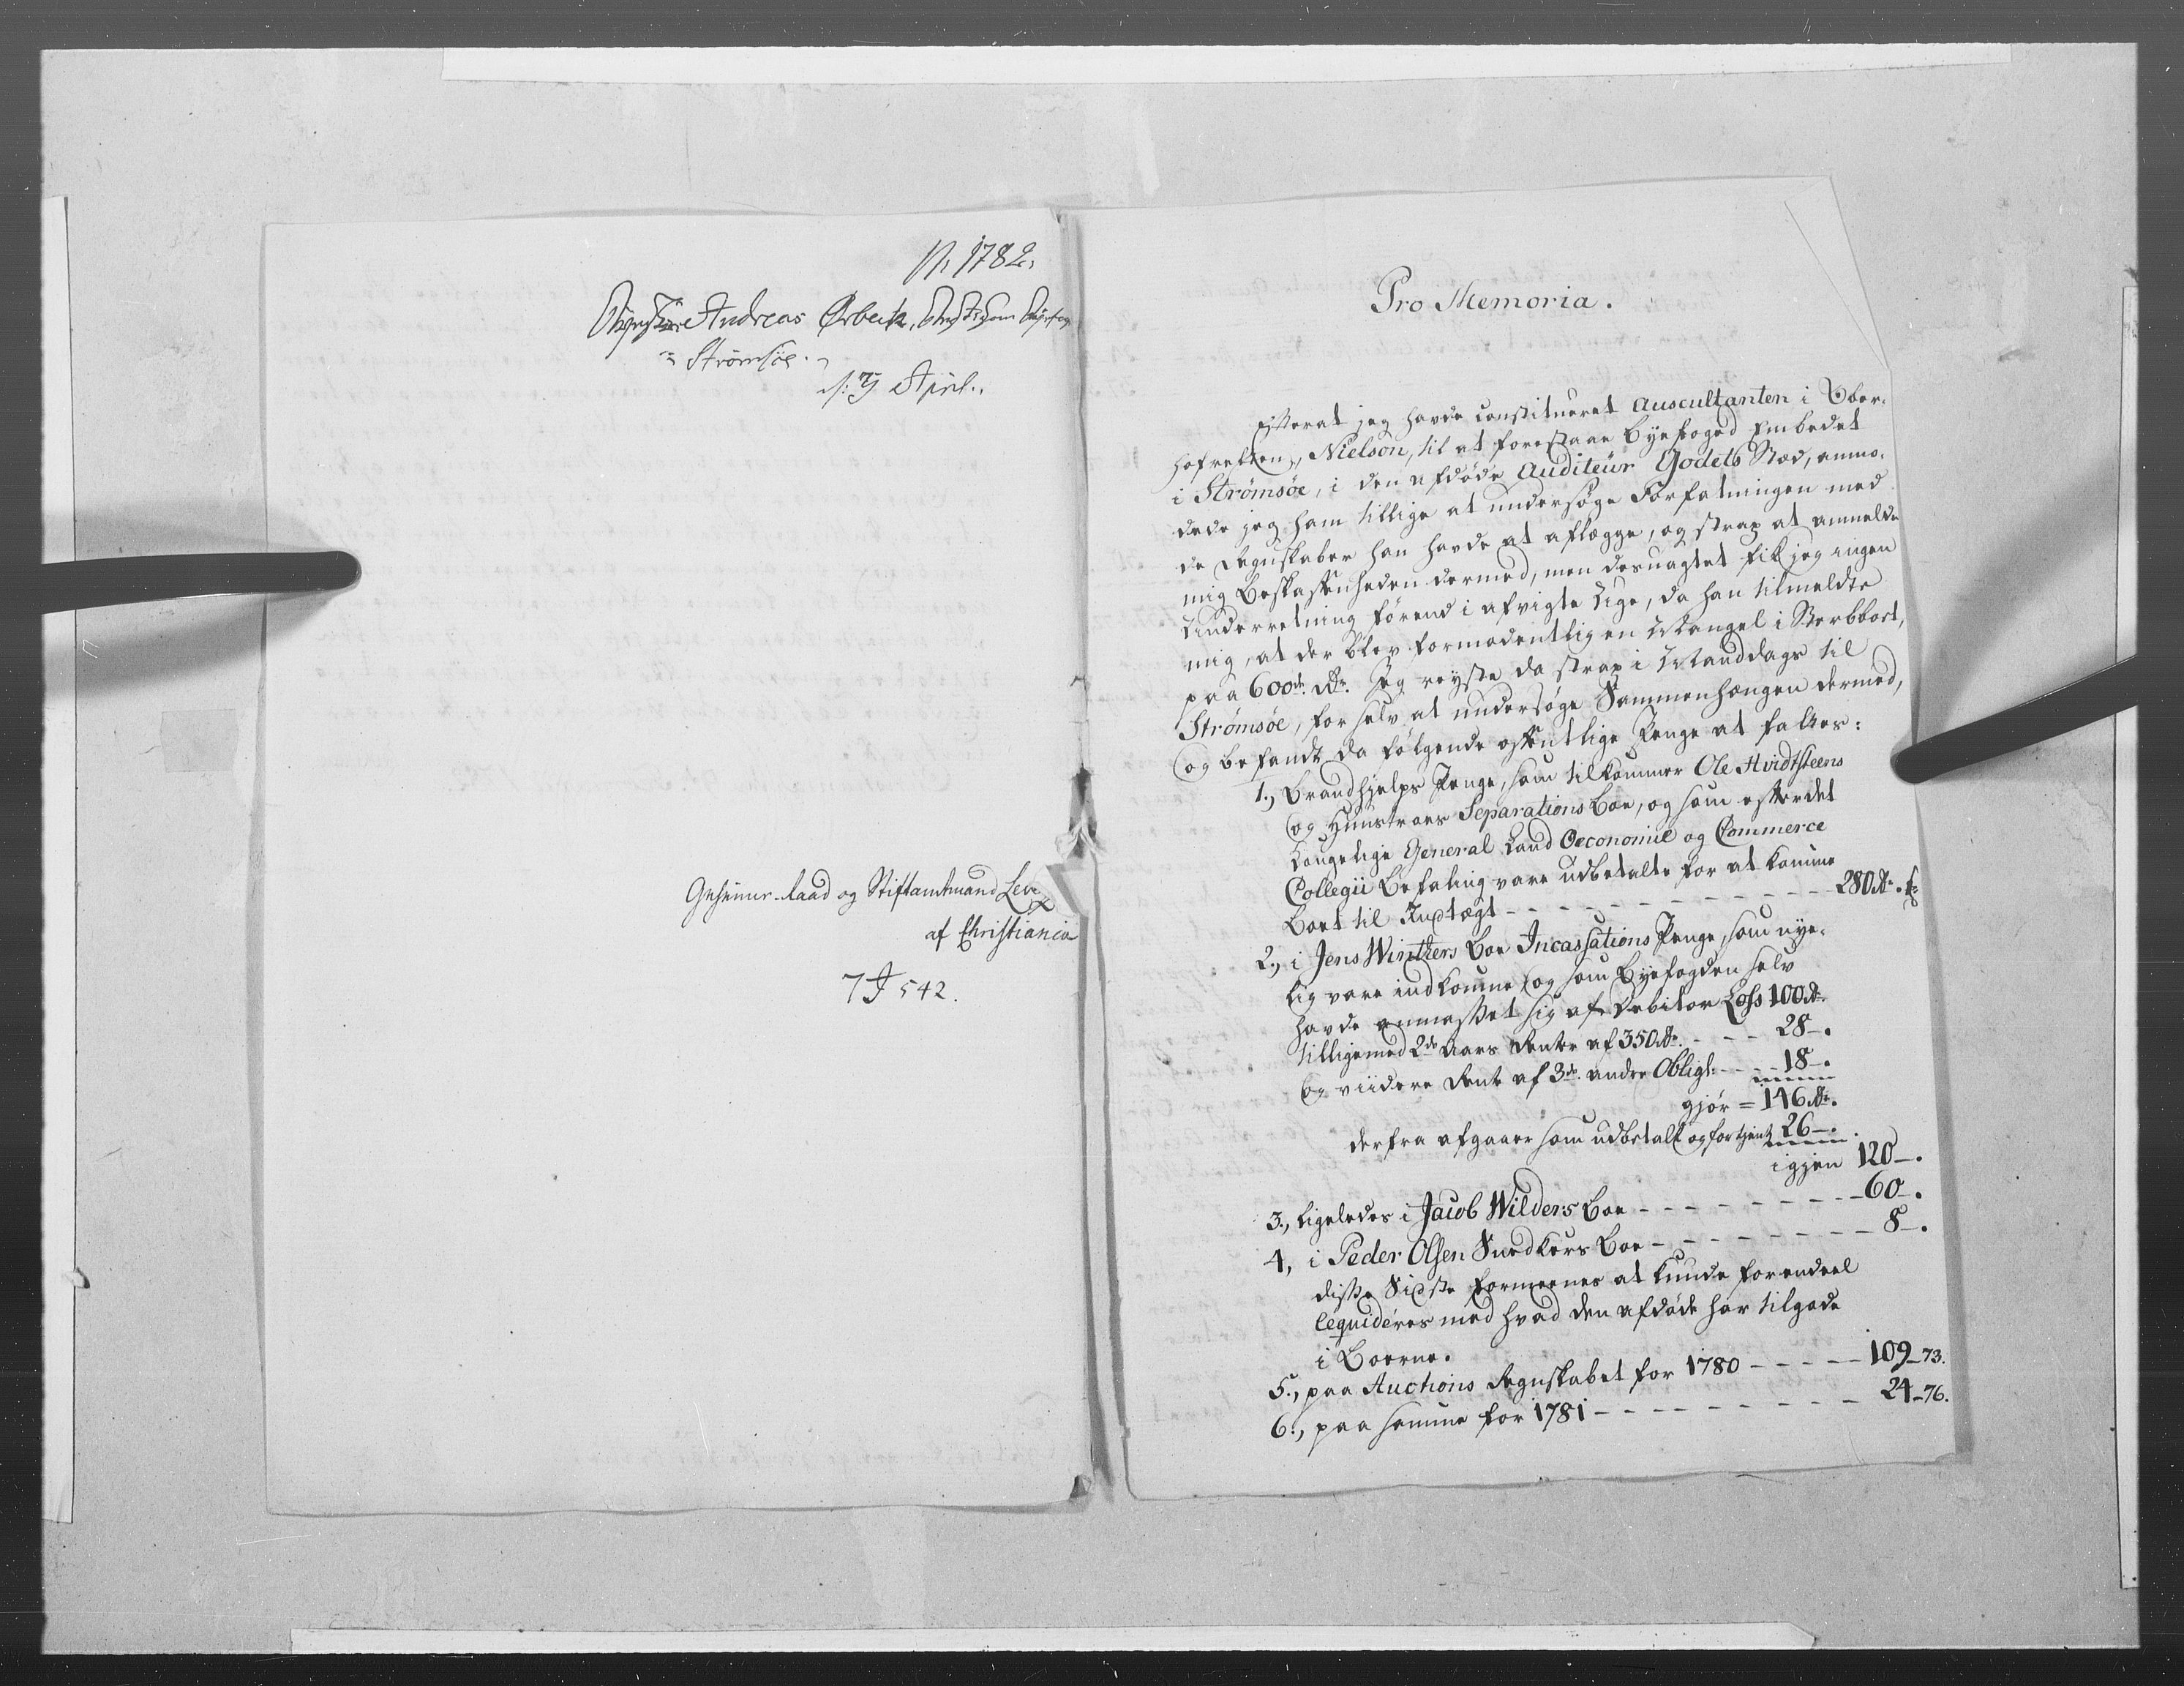 1782.
Andreas Ørbeck,
Strömsöe.
April.
Geheime-Raad og Stiftamtmand Lev
af Christiania
7 J 542.
Pro Memoria.
Efterat jeg havde constitueret Auscultanten i Ober-
hofretten, Nielson, til at forestaae Byefoged Embedet
i Strömsöe, i den afdøde Auditeur Godets Sted, anmo-
dede jeg ham tillige at undersøge Forfatningen med
de Regnskaber han havde at aflægge, og strax at anmelde
mig Beskaffenheden dermed, men desuagtet fik jeg ingen
Underretning førend i afvigte Uge, da han tilmeldte
mig, at der blev formodentlig en Mangel i Sterbboet,
paa 600 Rdr. Jeg reyste da strax i Manddags til
Strömsöe, for selv at undersøge Sammenhængen dermed,
og befandt da følgende offentlige Penge at fattes:
1., Brandhjelps Penge, som tilkommer Ole Hvidtsteens
og Hustroes Separations Boe, og som efter det
Kongelige General Land Oeconomie og Commerce
Collegii Befaling vare udbetalte for at komme
Boet til Indtægt - - - - - - - - - - 280 Rdr.
2., i Jens Winthers Boe Incassations Penge, som nye-
lig vare indkomne og som Byefogden selv
havde anmasset sig af Debitor Loss 100 Rdr.
tilligemed 2de Aars Renter af 350 Rdr. - - - 28 -.
og viidere Rente af 3de andre Obligt: - - - 18 -.
gjør = 146 Rdr.
derfra afgaaer som udbetalt og fortjent 26 -.
igjen 120 -.
3., ligeledes i Jacob Wilders Boe - - - - - - - - 60 -.
4, i Peder Olsen Snedkers Boe - - - - - - - - 8 -.
disse Sidste formeenes at kunde forendeel
liquideres med hvad den afdøde har tilgode
i Boerne.
5., paa Auctions Regnskabet for 1780 - - - - - 109 - 73.
6., paa samme for 1781 - - - - - - - - - 24 - 76.